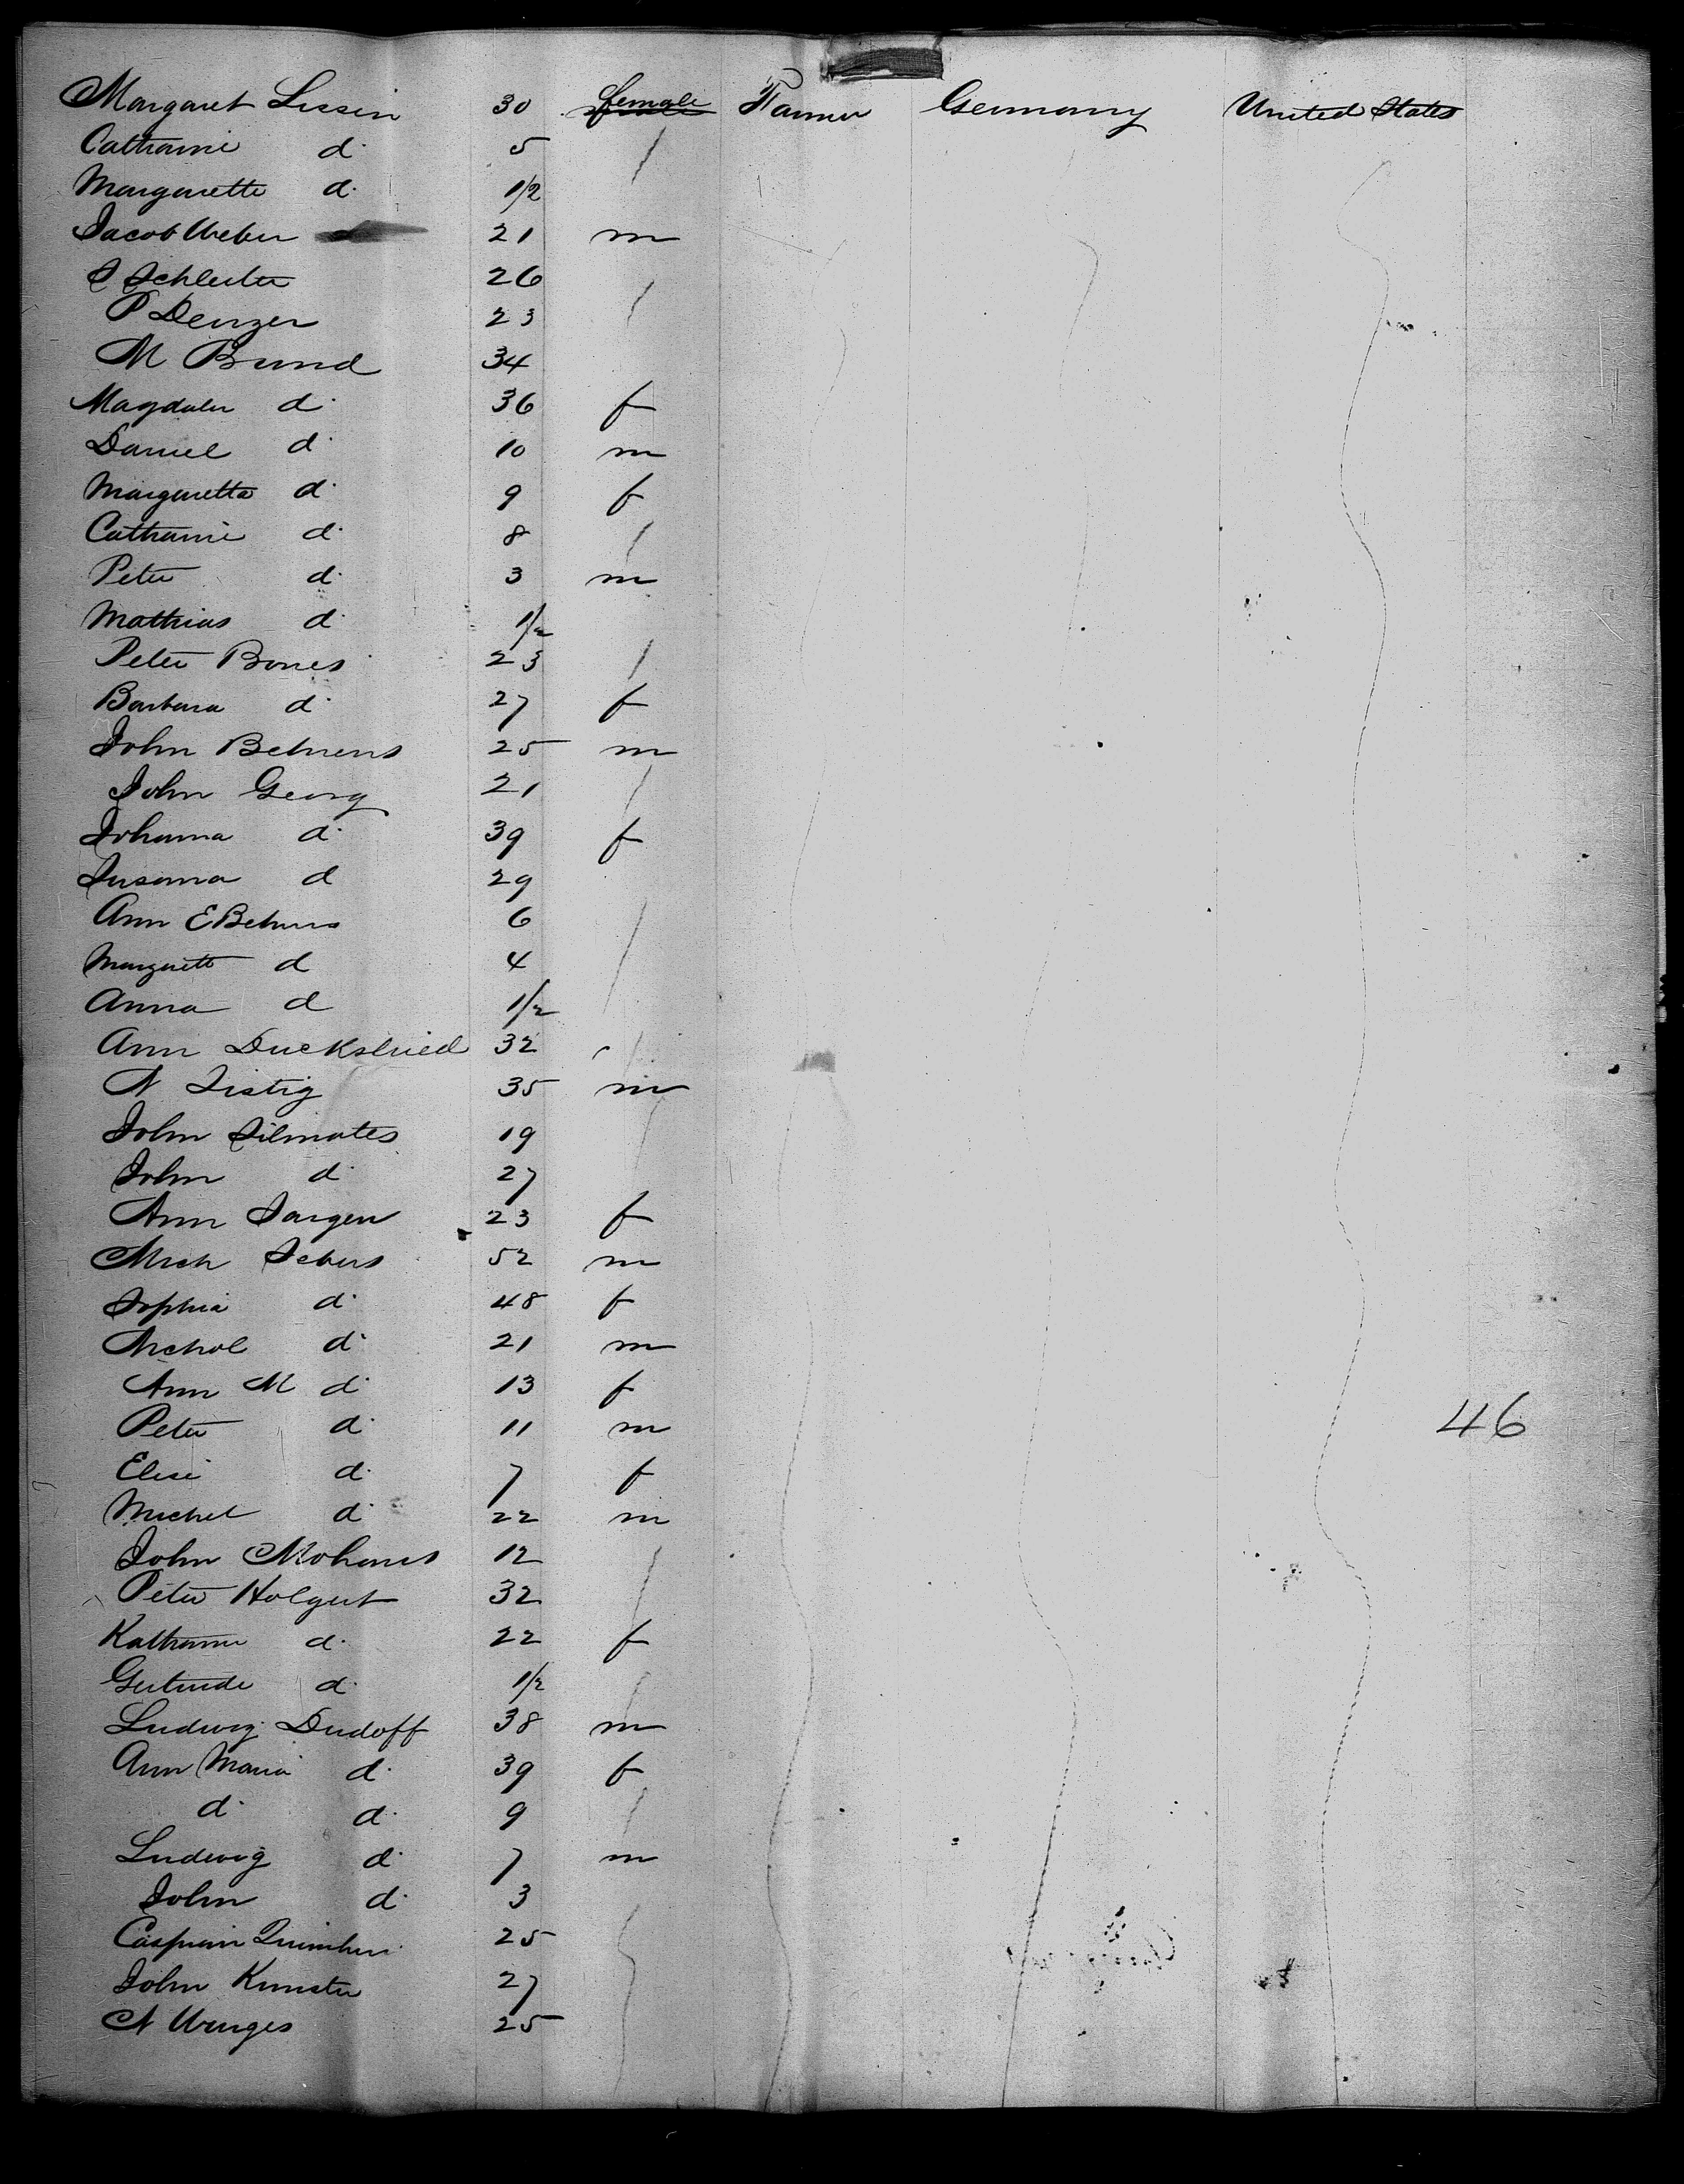 Margaret Lissin 30 female Farmer Germany United States
Catharine d. 5
Margarette d. 1/2
Jacob Weber 21 m
S Schleiter 26
P Denzer 23
M Brund 34
Magdalen d. 36 f
Daniel d. 10 m
Margaretta d. 9 f
Catharine d. 8
Peter d. 3 m
Mathias d. 1/2
Peter Bones 23
Barbara d. 27 f
John Behrens 25 m
John Georg 21
Johanna d. 39 f
Susanna d 29
Ann E Behrens 6
Margarett d 4
Anna d 1/2
Ann 32
N Listig 35 m
John Silmates 19
John d. 27
Ann Jargen 23 f
Mich Sebers 52 m
Sophia d. 48 f
Nichol d. 21 m
Ann M d. 13 f
Peter d. 11 m
Elise d. 7 f
Michel d. 22 m
John 12
Peter Holgert 32
Katharine d. 22 f
Gertrude d. 1/2
Ludwig Dudoff 38 m
Ann Maria d. 39 f
d. d. 9
Ludewig d. 7 m
John d. 3
25
John Kunster 27
N 25
46